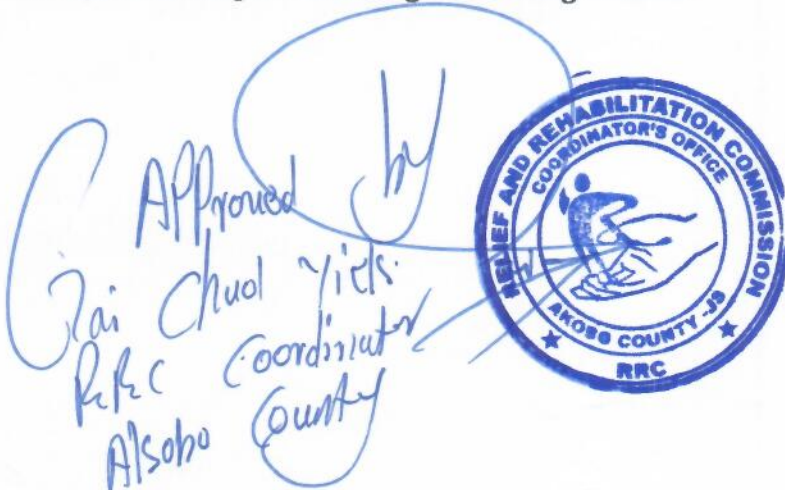 APProved by
Chuol
RRC Coordinator
Akobo County
RELIEF AND REHABILITATION COMMISSION
COORDINATOR'S OFFICE
AKOBO COUNTY -JS
RRC